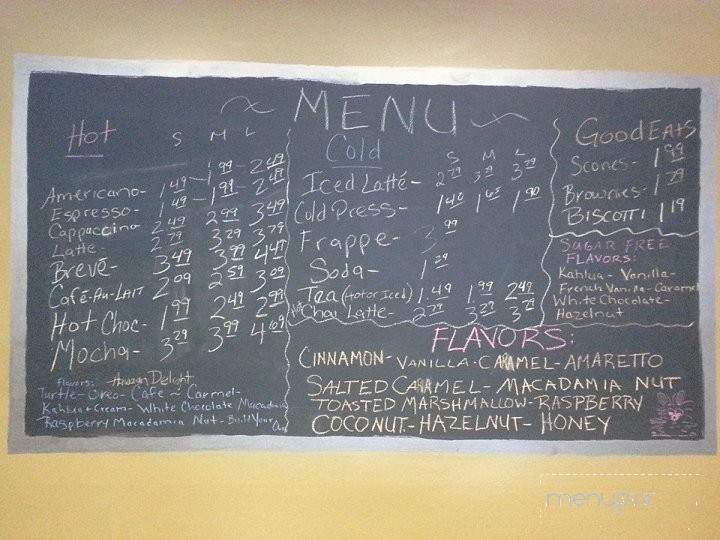 MENU
Hot
S M L
Americano- 1.49 - 1.99 - 2.49
Espresso- 1.49 - 1.99 - 2.49
Cappuccino 2.49 2.99 3.49
Latte- 2.79 3.29 3.79
Brevé- 3.49 3.99 4.49
Café-Au-LAIT 2.09 2.59 3.09
Hot Choc- 1.99 2.49 2.99
Mocha- 3.29 3.99 4.69
Flavors: Amazon Delight
Turtle-Oreo-Cafe ~ Carmel-
Kahlua+Cream-White Chocolate Macadamia
Raspberry Macadamia Nut-Build Your Own
Cold
S M L
Iced Latté- 2.79 3.29 3.79
Cold Press- 1.40 1.65 1.90
Frappe- 3.99
Soda- 1.29
Tea (Hot or Iced) 1.49 1.99 2.49
Chai Latte- 2.79 3.29 3.79
Good EATS
Scones- 1.99
Brownies- 1.79
BISCOTTI 1.19
SUGAR FREE
FLAVORS:
Kahlua-Vanilla-
French Vanilla-Caramel
White Chocolate-
Hazelnut
FLAVORS:
CINNAMON-VANILLA-CARAMEL-AMARETTO
SALTED CARAMEL-MACADAMIA NUT
TOASTED MARSHMALLOW-RASPBERRY
COCONUT-HAZELNUT-HONEY
menupix